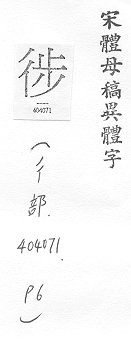 宋體母稿異體字
徏
404071
（彳部.404071. P6）